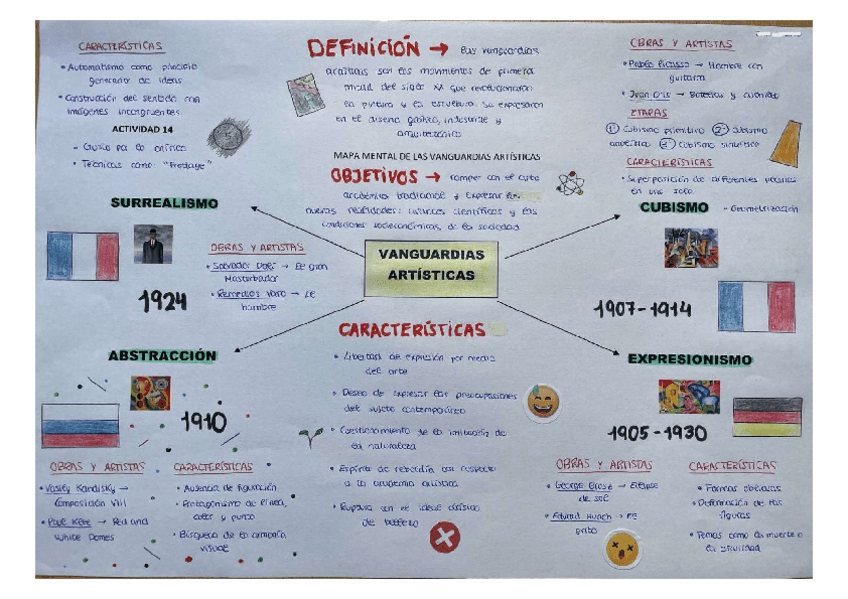 CARACTERÍSTICAS
• Automatismo como principio
generador de ideas
• Construcción del sentido con
imágenes incongruentes.
ACTIVIDAD 14
- Gusto por lo onírico
- Técnicas como: "Frottage"
SURREALISMO
1924
OBRAS Y ARTISTAS
• Salvador Dalí → El gran
Masturbador
• Remedios Varo → El
hombre
DEFINICIÓN → Las vanguardias
artísticas son los movimientos de primera
mitad del siglo XX que revolucionaron
la pintura y la escultura. Se expresaron
en el diseño gráfico, industrial y
arquitectónico
MAPA MENTAL DE LAS VANGUARDIAS ARTÍSTICAS
OBJETIVOS → romper con el arte
académico tradicional y Expresar las
nuevas realidades: avances científicos y las
condiciones socioeconómicas de la sociedad
VANGUARDIAS
ARTÍSTICAS
OBRAS Y ARTISTAS
• Pablo Picasso → Hombre con
guitarra
• Juan Gris → Botellas y
ETAPAS
① Cubismo primitivo ② Cubismo
analítico ③ Cubismo sintético
CARACTERÍSTICAS
• Superposición de diferentes
en uno solo.
- Geometrización
CUBISMO
1907-1914
ABSTRACCIÓN
1910
OBRAS Y ARTISTAS
• Vasily Kandisky →
Composición VIII
• Paul Klee → Red and
White Domes
CARACTERÍSTICAS
• Ausencia de figuración
• Protagonismo de línea,
color y punto
• Búsqueda de la armonía
visual
CARACTERÍSTICAS
• Libertad de expresión por medio
del arte
• Deseo de expresar las preocupaciones
del sujeto contemporáneo
• Cuestionamiento de la imitación de
la naturaleza
• Espíritu de rebeldía con respecto
a la academia artística
• Ruptura con el ideal clásico
de belleza
EXPRESIONISMO
1905-1930
OBRAS Y ARTISTAS
• George Grosz → Eclipse
de sol
• Edvard Munch → El
grito
CARACTERÍSTICAS
• Formas
• Deformación de las
figuras
• Temas como la muerte o
la